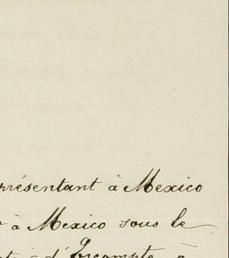 présentant à Mexico
à Mexico sous le
d'Escompte à